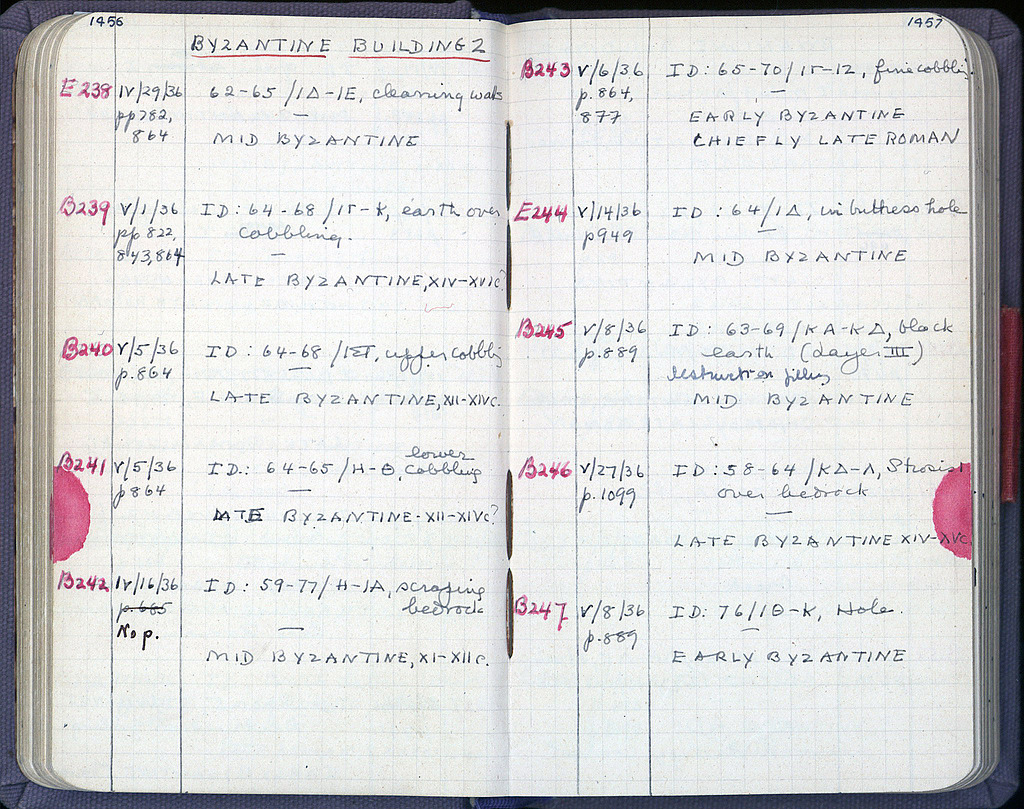 1456
BYZANTINE BUILDING 2
E 238 IV/29/36 62-65/ΙΔ-ΙΕ, cleaning walls
pp 782,
864 MID BYZANTINE
B239 V/1/36 ID: 64-68/ΙΓ-Κ, earth over
pp 822, cobbling.
843, 864
LATE BYZANTINE, XIV-XVIc?
B240 V/5/36 ID: 64-68/ΙΣΤ, upper cobbling
p.864
LATE BYZANTINE, XII-XIVc.
B241 V/5/36 ID.: 64-65/Η-Θ, lower cobbling
p864
LATE BYZANTINE-XII-XIVc?
B242 IV/16/36 ID: 59-77/Η-ΙΑ, scraping
p.685 bedrock
No p.
MID BYZANTINE, XI-XIIc.
1457
B243 V/6/36 ID: 65-70/ΙΓ-12, fine cobblin.
p.864,
877 EARLY BYZANTINE
CHIEFLY LATE ROMAN
E244 V/14/36 ID: 64/ΙΔ, in buttress hole
p949
MID BYZANTINE
B245 V/8/36 ID: 63-69/ΚΑ-ΚΔ, black
p.889 earth (layer III)
destruction filling
MID BYZANTINE
B246 V/27/36 ID: 58-64/ΚΔ-Λ, Strosis
p.1099 over bedrock
LATE BYZANTINE XIV-XVc.
B247 V/8/36 ID: 76/ΙΘ-Κ, Hole.
p.889
EARLY BYZANTINE